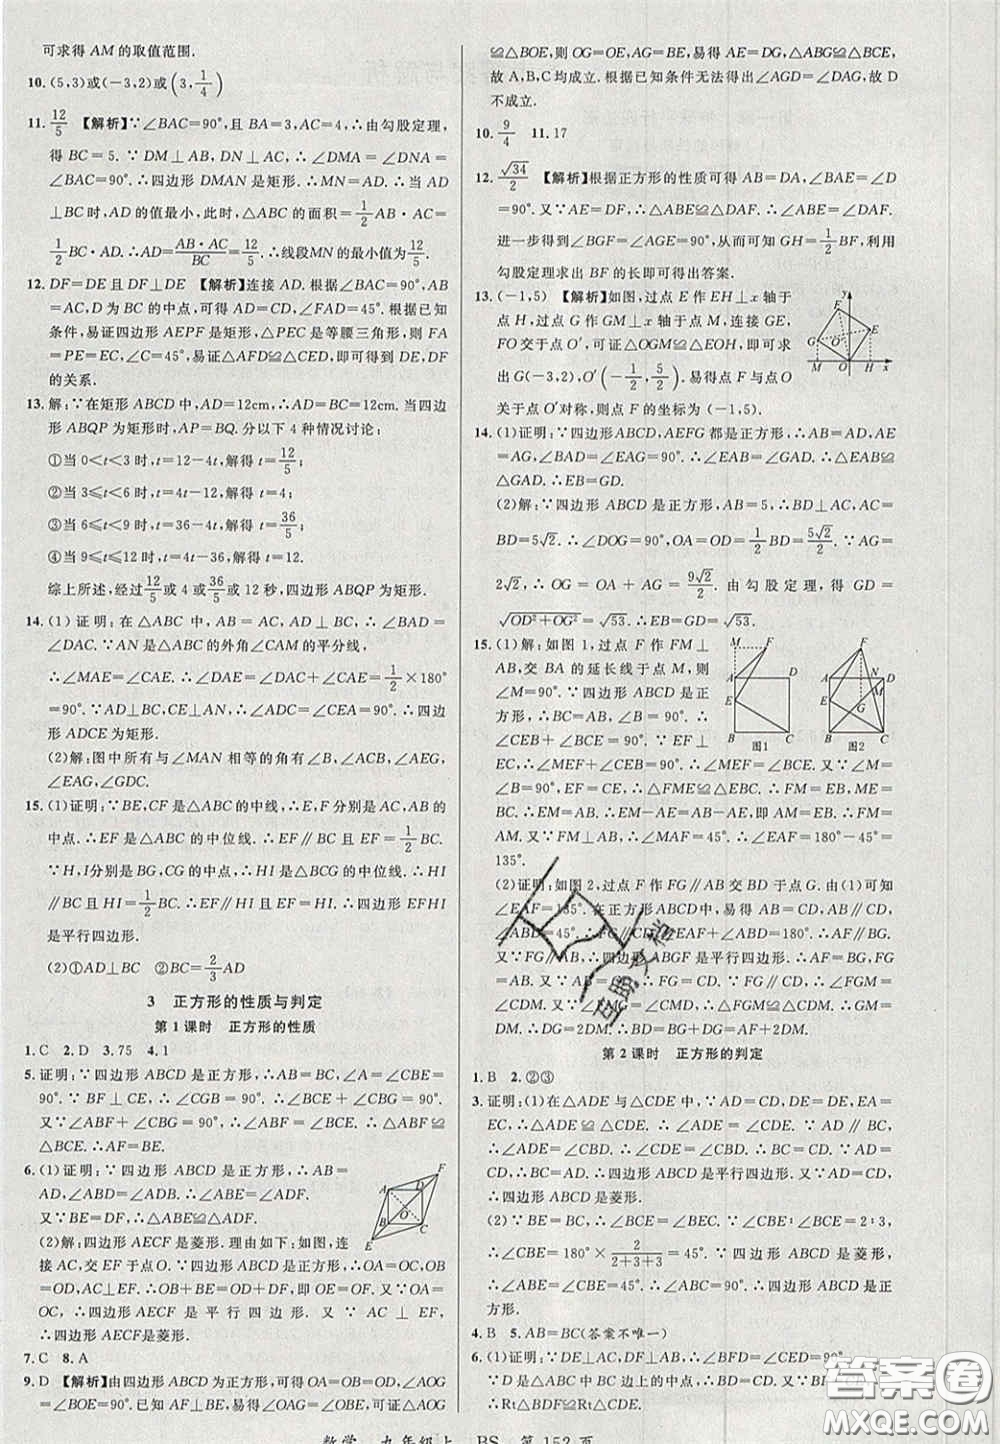 可求得 AM 的取值范围.
10. (5,3)或(-3,2)或(3,1/4)
11. 12/5 【解析】∵∠BAC=90°,且 BA=3,AC=4,∴由勾股定理,
得 BC=5. ∵DM⊥AB,DN⊥AC,∴∠DMA=∠DNA=
∠BAC=90°.∴四边形 DMAN 是矩形.∴MN=AD.∴当 AD
⊥BC时,AD的值最小,此时,△ABC 的面积=1/2 AB·AC=
1/2 BC·AD.∴AD=AB·AC/BC=12/5.∴线段MN的最小值为12/5.
12. DF=DE 且 DF⊥DE 【解析】连接 AD.∵∠BAC=90°,AB=
AC,D 为 BC 的中点,可得 AD=CD,∠FAD=45°.根据已知
条件,易证四边形 AEPF 是矩形,△PEC 是等腰三角形,则 FA
=PE=EC,∠C=45°,易证△AFD≌△CED,即可求得 DE,DF
的关系.
13. 解:∵在矩形 ABCD 中,AD=12cm,∴AD=BC=12cm.当四边
形 ABQP 为矩形时,AP=BQ.分以下 4 种情况讨论:
①当 0<t<3 时,t=12-4t,解得 t=12/5;
②当 3≤t<6 时,t=4t-12,解得 t=4;
③当 6≤t<9 时,t=36-4t,解得 t=36/5;
④当 9≤t≤12 时,t=4t-36,解得 t=12.
综上所述,经过12/5或 4 或36/5或 12 秒,四边形 ABQP 为矩形.
14. (1)证明:在△ABC 中,AB=AC,AD⊥BC,∴∠BAD=
∠DAC.∵AN 是△ABC 的外角∠CAM 的平分线,
∴∠MAE=∠CAE.∴∠DAE=∠DAC+∠CAE=1/2×180°
=90°.又∵AD⊥BC,CE⊥AN,∴∠ADC=∠CEA=90°.∴四边
形 ADCE 为矩形.
(2)解:图中所有与∠MAN 相等的角有∠B,∠ACB,∠AEG,
∠EAG,∠GDC.
15. (1)证明:∵BE,CF 是△ABC 的中线,∴E,F分别是 AC,AB 的
中点.∴EF 是△ABC 的中位线.∴EF∥BC 且 EF=1/2BC.
∵H,I分别是 BG,CG 的中点,∴HI是△BCG 的中位线.∴HI
∥BC 且 HI=1/2BC.∴EF∥HI 且 EF=HI.∴四边形 EFHI
是平行四边形.
(2)①AD⊥BC ②BC=2/3AD
3 正方形的性质与判定
第 1 课时 正方形的性质
1. C 2. D 3. 75 4. 1
5. 证明:∵四边形 ABCD 是正方形,∴AB=BC,∠A=∠CBE=
90°.∵BF⊥CE,∴∠CGB=90°.∴∠BCE+∠CBG=90°.
又∵∠ABF+∠CBG=90°,∴∠BCE=∠ABF.∴△ABF
≌△BCE.∴AF=BE.
6. (1)证明:∵四边形 ABCD 是正方形,∴AB=
AD,∠ABD=∠ADB.∴∠ABE=∠ADF.
又∵BE=DF,∴△ABE≌△ADF.
(2)解:四边形 AECF 是菱形.理由如下:如图,连
接 AC,交 EF 于点 O.∵四边形 ABCD 是正方形,∴OA=OC,OB
=OD,AC⊥EF.∴OB+BE=OD+DF,即 OE=OF.又∵OA=
OC,∴四边形 AECF 是平行四边形.又∵AC⊥EF,
∴四边形 AECF是菱形.
7. C 8. A
9. D 【解析】由四边形 ABCD 为正方形,可得OA=OB=OD,∠AOG
=∠BOE=90°.已知∠OAG=∠OBE,根据全等可得△AOG
≌△BOE,则 OG=OE.又∵OA=OB,易得 BG=CE,
故 A,B,C 均成立.根据已知条件无法得出∠AGD=∠ADG,故 D
不成立.
10. 9/4 11. 17
12. √34/2 【解析】根据正方形的性质可得 AB=DA,∠BAE=∠D
=90°.又∵AE=DF,∴△ABE≌△DAF.∴∠ABE=∠DAF.
进一步可得∠BGF=∠AGE=90°,从而可知 GH=1/2BF,利用
勾股定理求出 BF 的长即可得出答案.
13. (-1,5) 【解析】如图,过点 E 作 EH⊥x 轴于
点 H,过点 G 作 GM⊥x 轴于点 M,连接 GE,
FO交于点 O′,可证△OGM≌△EOH,即可求
出 G(-3,2),O′(-1/2,5/2).易得点 F 与点 O
关于点 O′对称,则点 F 的坐标为(-1,5).
14. (1)证明:∵四边形 ABCD,AEFG 都是正方形,∴AB=AD,AE
=AG,∠BAD=∠EAG=90°.∴∠EAB=∠GAD.∴△EAB
≌△GAD.∴EB=GD.
(2)解:∵四边形 ABCD 是正方形,AB=5,∴BD⊥AC,AC=
BD=5√2.∴∠DOG=90°,OA=OD=1/2BD=5√2/2.∵AG=
2√2,∴OG=OA+AG=9√2/2.由勾股定理,得 GD=
√OD²+OG²=√53.∴EB=GD=√53.
15. (1)解:如图 1,过点 F 作 FM⊥
AB,交 BA 的延长线于点 M,则
∠M=90°.∵四边形 ABCD 是正方
形,∴BC=AB,∠B=90°.∴∠M=∠B,
∠CEB+∠BCE=90°.∵EF⊥
CE,∴∠CEB+∠MEF=90°.
∴∠MEF=∠BCE.又∵EF=CE,∴△MEF≌△BCE.
∴FM=EB,EM=BC.∴EM=AB.∴EM-AE=AB-AE,即 AM
=EB.∴FM=AM.又∵FM⊥AB,∴∠MAF=45°.∴∠EAF=180°-45°=
135°.
(2)证明:如图 2,过点 F 作 FG∥AB 交 BD 于点 G.由(1)可知
∠EAF=135°.在正方形ABCD中,∵AB=CD,AB∥CD,
∠ABD=45°.∴∠EAF+∠ABD=180°.∴AF∥BD.
又∵FG∥AB,∴四边形 ABGF 是平行四边形.∴AF=BG,
FG=AB=CD.∴FG∥CD.∴∠FGM=∠CDM.
又∵∠FMG=∠CMD,∴△FGM≌△CDM.∴GM=
DM.∴DG=2DM.∴BD=BG+DG=AF+2DM.
第 2 课时 正方形的判定
1. B 2. ②③
3. 证明:(1)在△ADE 与△CDE 中,∵AD=CD,DE=DE,EA=
EC,∴△ADE≌△CDE.∴∠ADE=∠CDE.∵AD∥BC,
∴∠ADE=∠CBD.∴∠CDE=∠CBD.∴BC=CD.∵AD=
CD,∴BC=AD.∴四边形ABCD是平行四边形.∵AD=CD,
∴四边形 ABCD 是菱形.
(2)∵BE=BC,∴∠BCE=∠BEC.∵∠CBE∶∠BCE=2∶3,
∴∠CBE=180°×2/(2+3+3)=45°.∵四边形 ABCD 是菱形,
∴∠ABE=∠CBE=45°.∴∠ABC=90°.∴四边形 ABCD 是正
方形.
4. B 5. AB=BC(答案不唯一)
6. (1)证明:∵DE⊥AC,DF⊥AB,∴∠BFD=∠CED=90°.
∴Rt△BDF≌Rt△CDE.∴∠B=∠C.
A
D
F
O
B
C
E
y
F
E
G
O′
M
O
H
x
M
F
A
D
E
B
C
图1
F
A
N
D
M
E
G
B
C
图2
互助文档
答案圈
MXQE.COM
数学 九年级上 BS 第 152 页